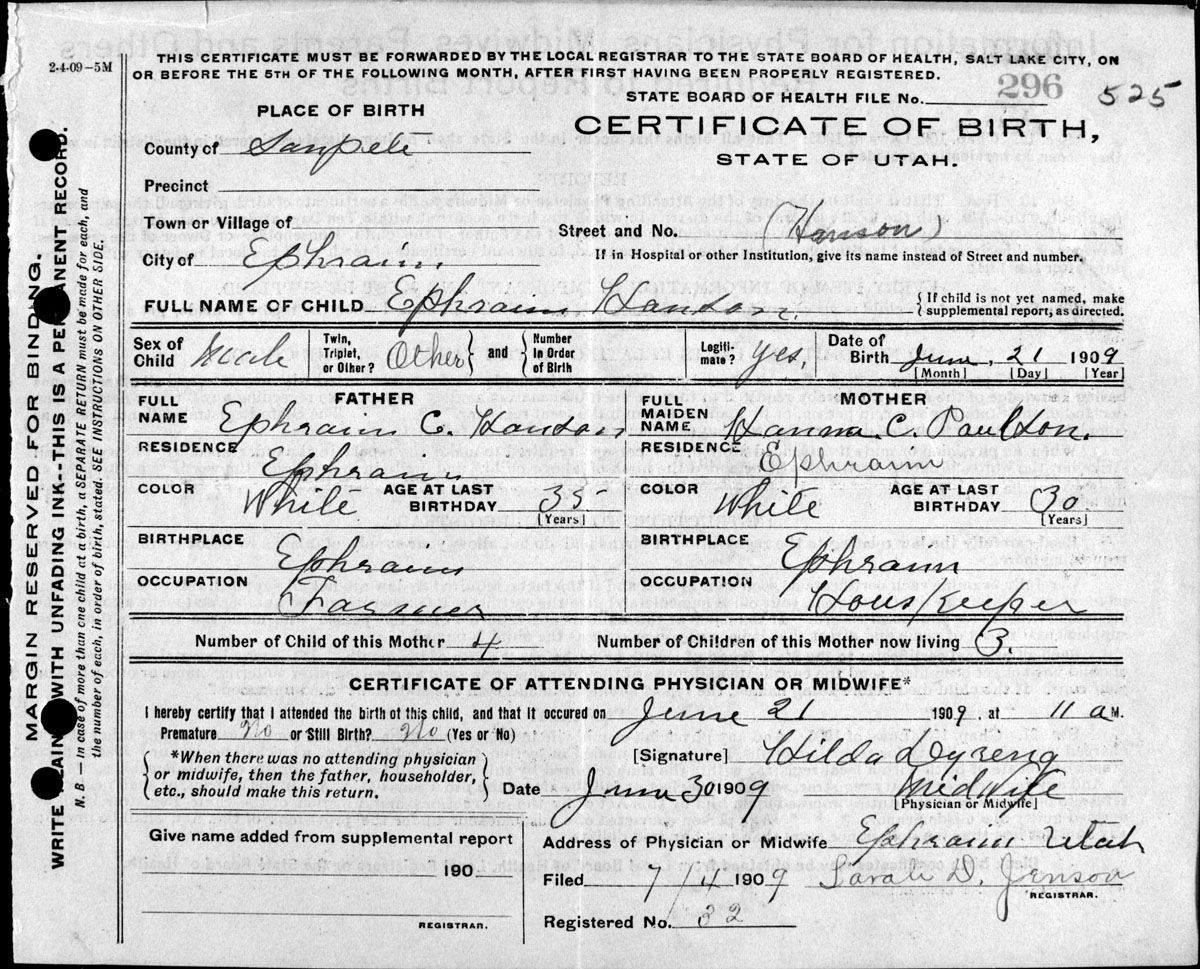 2-4-09-5M
THIS CERTIFICATE MUST BE FORWARDED BY THE LOCAL REGISTRAR TO THE STATE BOARD OF HEALTH, SALT LAKE CITY, ON
OR BEFORE THE 5TH OF THE FOLLOWING MONTH, AFTER FIRST HAVING BEEN PROPERLY REGISTERED.
STATE BOARD OF HEALTH FILE No. 296 525
PLACE OF BIRTH
CERTIFICATE OF BIRTH,
STATE OF UTAH.
County of Sanpete
Precinct
Town or Village of
Street and No. (Hanson)
City of Ephraim
If in Hospital or other Institution, give its name instead of Street and number.
FULL NAME OF CHILD Ephraim Hanson. { If child is not yet named, make supplemental report, as directed.
Sex of Child Male Twin, Triplet, or Other? Other } and { Number In Order of Birth Legiti-mate? Yes, Date of Birth June, 21 1909
[Month] [Day] [Year]
FATHER
MOTHER
FULL NAME Ephraim C. Hanson
FULL MAIDEN NAME Hanna. C. Paulson.
RESIDENCE Ephraim
RESIDENCE Ephraim
COLOR White AGE AT LAST BIRTHDAY 35 [Years]
COLOR White AGE AT LAST BIRTHDAY 30 [Years]
BIRTHPLACE Ephraim
BIRTHPLACE Ephraim
OCCUPATION Farmer
OCCUPATION Hous Keeper
Number of Child of this Mother 4 Number of Children of this Mother now living 3.
CERTIFICATE OF ATTENDING PHYSICIAN OR MIDWIFE*
I hereby certify that I attended the birth of this child, and that it occured on June 21 1909, at 11 a M.
Premature No or Still Birth? No (Yes or No)
*When there was no attending physician
or midwife, then the father, householder,
etc., should make this return.
[Signature] Hilda Dyreng
Date June 30 1909 Midwife
[Physician or Midwife]
Give name added from supplemental report
190
REGISTRAR.
Address of Physician or Midwife Ephraim Utah
Filed 7/4 1909 Sarah D. Jenson
REGISTRAR.
Registered No. 32
MARGIN RESERVED FOR BINDING.
WRITE PLAINLY WITH UNFADING INK--THIS IS A PERMANENT RECORD.
N. B.—In case of more than one child at a birth, a SEPARATE RETURN must be made for each, and
the number of each, in order of birth, stated. SEE INSTRUCTIONS ON OTHER SIDE.